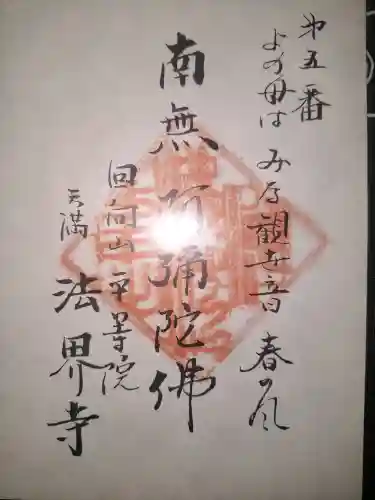 第五番
よの母は みな観世音 春の風
南無阿彌陀佛
回向山 平等院
天満
法界寺